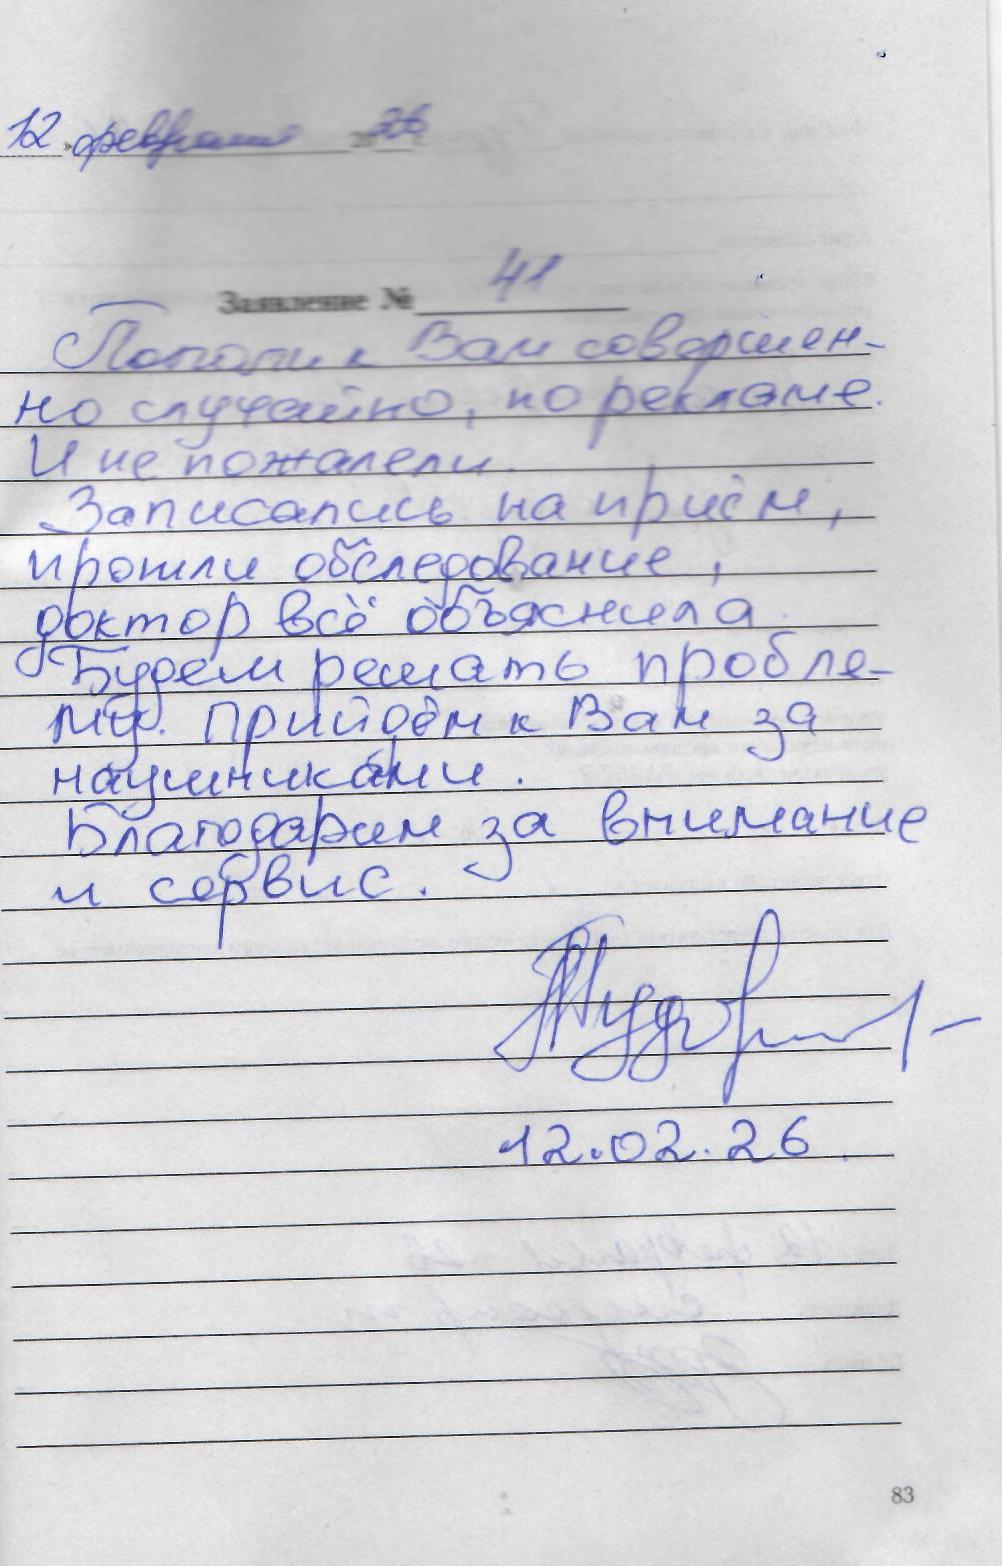 12 февраля 2026
Заявление № 41
Попали к Вам совершен-
но случайно, по рекламе.
И не пожалели.
Записались на приём,
прошли обследование,
доктор всё объяснила.
Будем решать пробле-
му. Прийдём к Вам за
наушниками.
Благодарим за внимание
и сервис.
12.02.26.
83